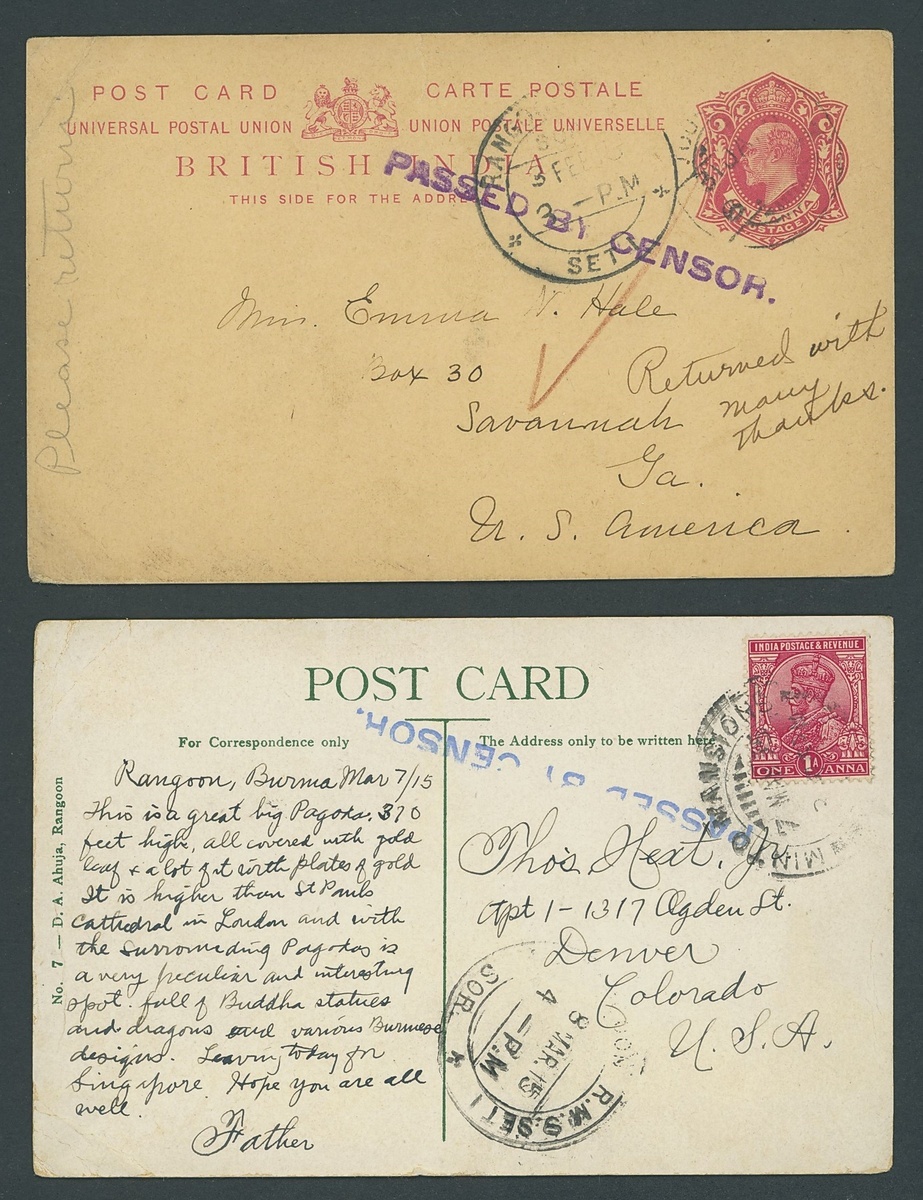 POST CARD CARTE POSTALE
UNIVERSAL POSTAL UNION UNION POSTALE UNIVERSELLE
BRITISH INDIA
THIS SIDE FOR THE ADDRE
PASSED BY CENSOR.
RANGO
3 FEB
3 — P.M
SET 1
ONE ANNA
POSTAGE
Please return
Emma W. Hale
Box 30
Savannah
Ga.
U. S. America.
Returned with
many
thanks.
POST CARD
For Correspondence only
The Address only to be written here
PASSED BY CENSOR.
INDIA POSTAGE & REVENUE
1A
ONE ANNA
MANSION
MIN
No. 7 — D. A. Ahuja, Rangoon
Rangoon, Burma Mar 7/15
This is a great big Pagoda. 370
feet high, all covered with gold
leaf & a lot of it with plates of gold
It is higher than St Pauls
Cathedral in London and with
the surrounding Pagodas is
a very peculiar and interesting
spot. full of Buddha statues
and dragons and various Burmese
designs. Leaving today for
Singapore. Hope you are all
well.
Father
Tho's Hext, Jr
Apt 1 - 1317 Ogden St.
Denver
Colorado
U. S. A.
SOR.
4 — P.M
8 MAR.15
R.M.S. SET 1